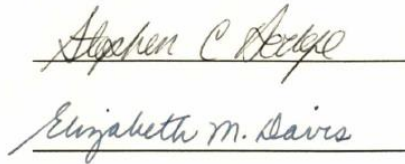 Stephen C Hodge
Elizabeth M. Davis